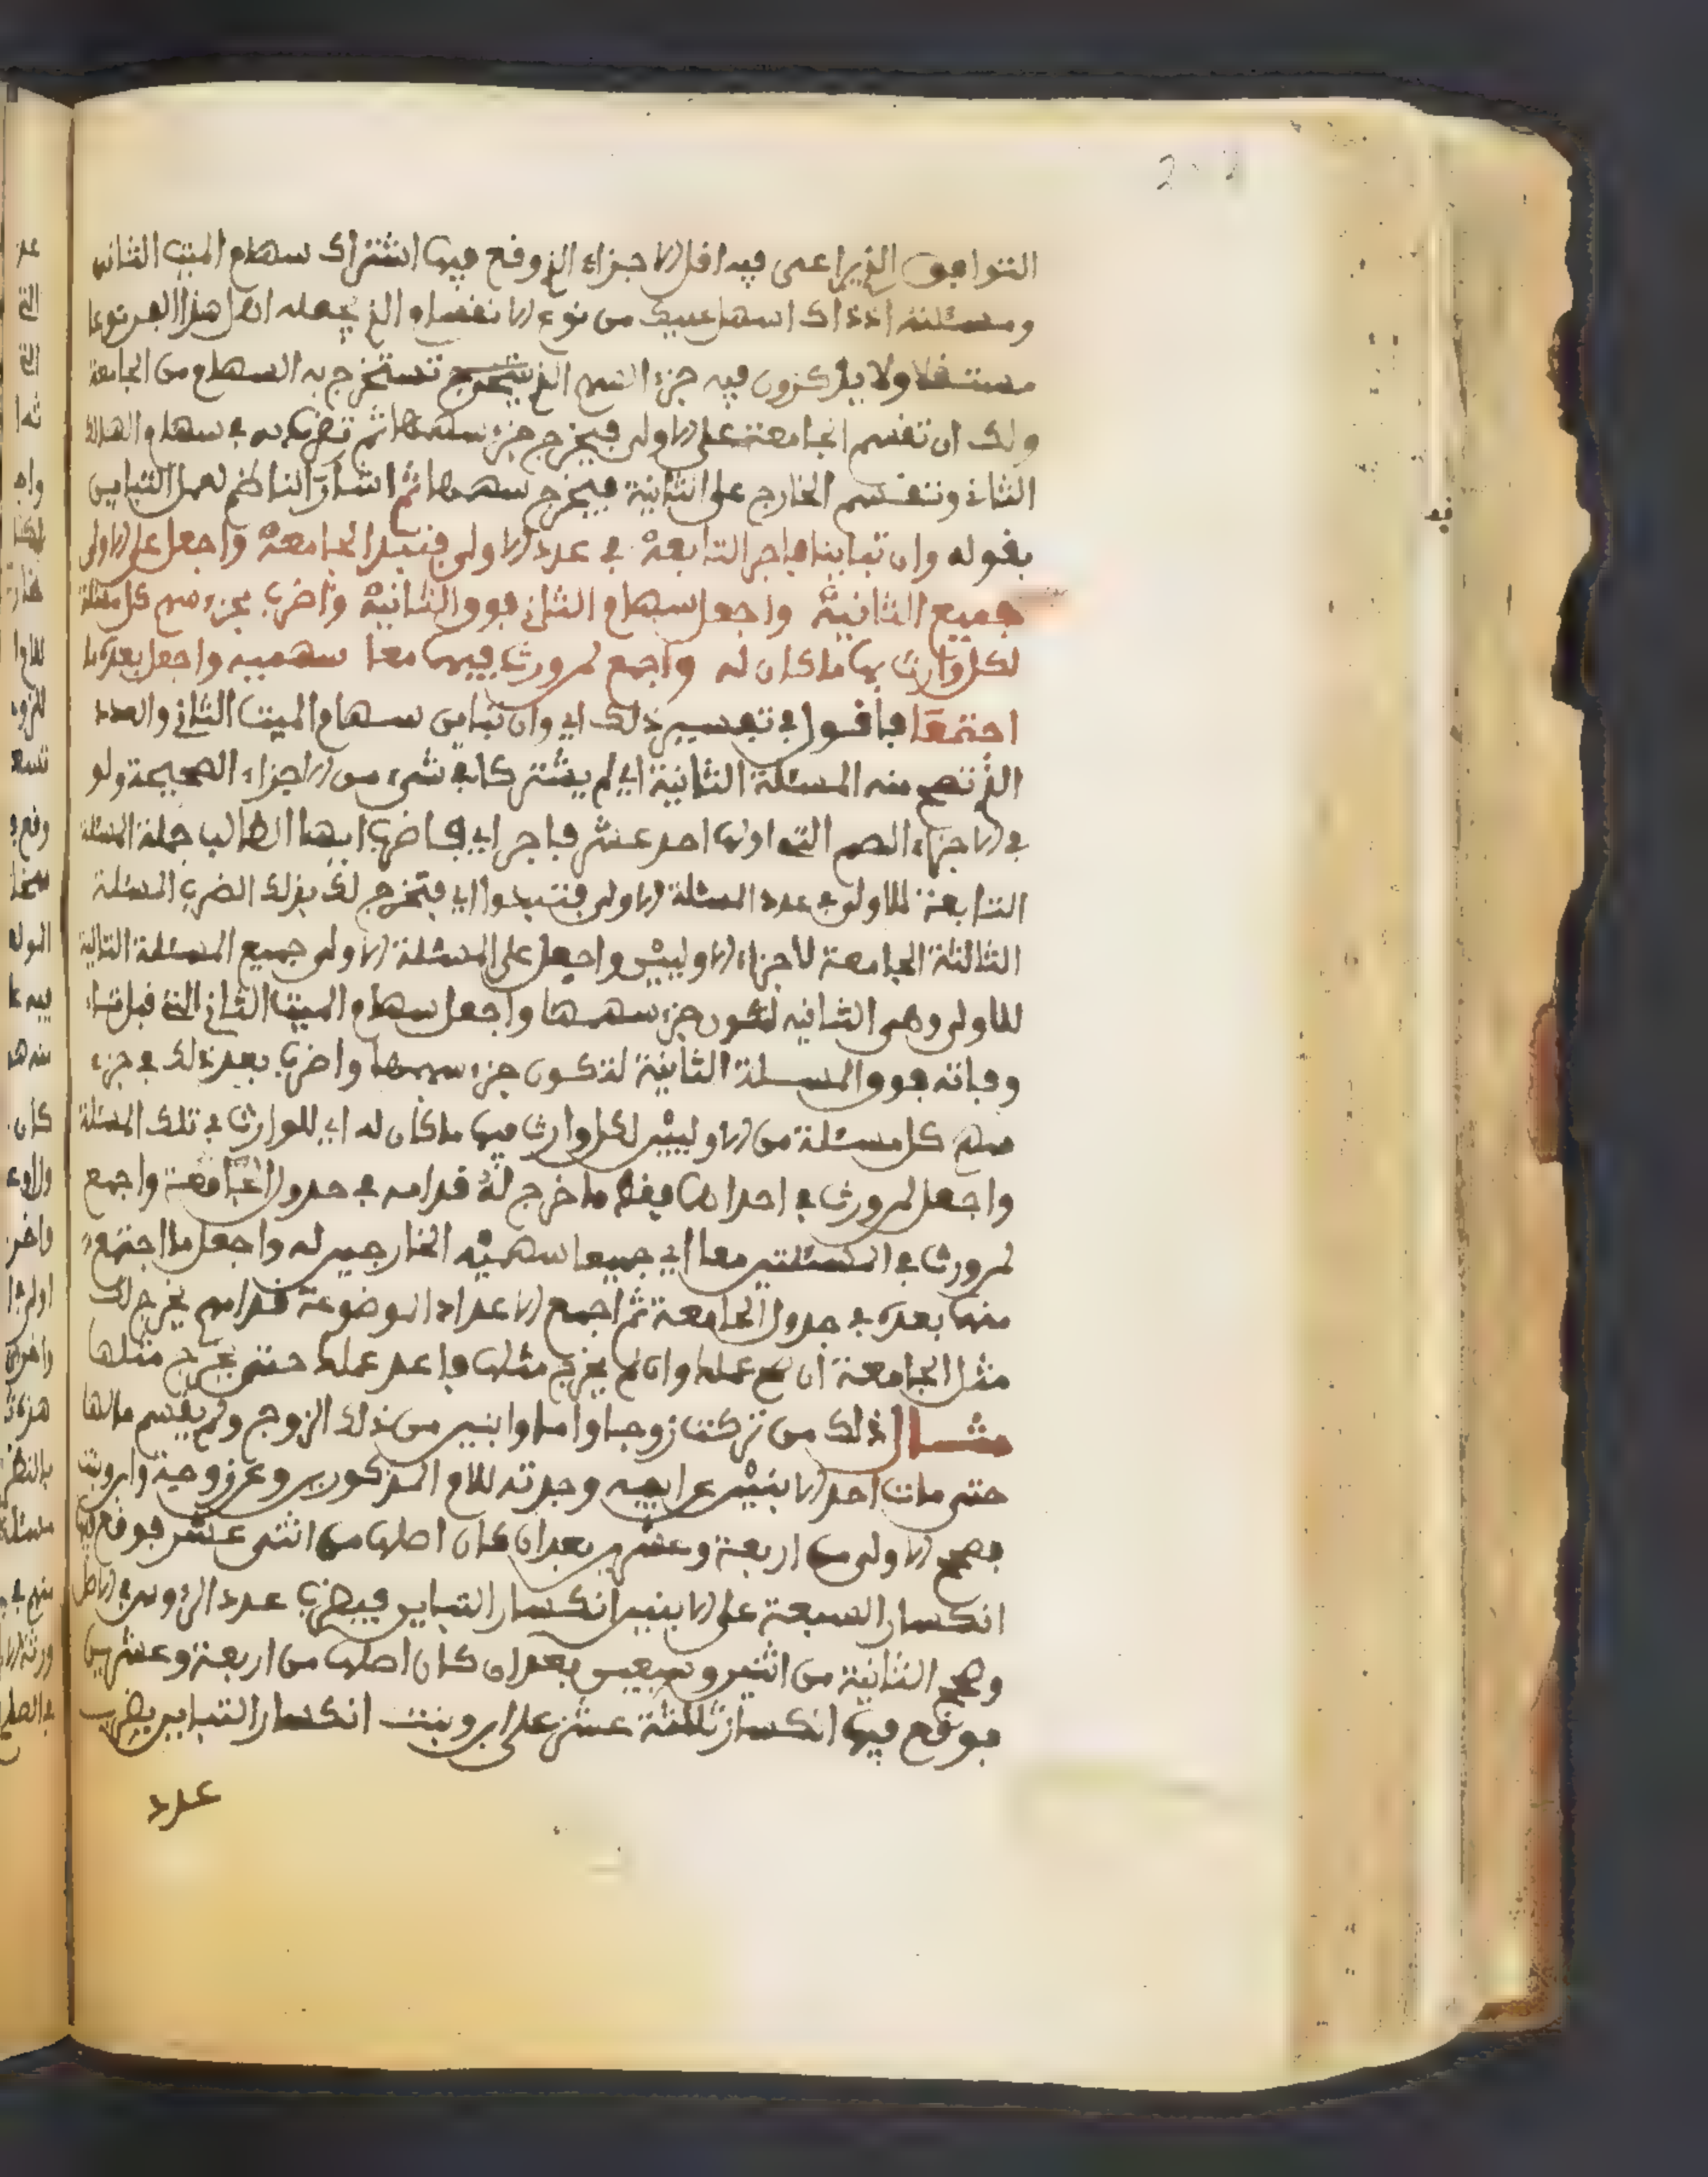 التوافق الذي يراعى فيه اقل الاجزاء الذي وقع فيها اشتراك سهام الميت الثاني
ومسئلته اذ ذاك اسهل عليك من نوع الانقسام الذي يجعله اهل هذا الفن نوعا
مستقلا ولا يذكرون فيه جزء السهم الذي تستخرج به السهام من الجامعة
ولك ان تقسم الجامعة على الاولى فيخرج جزء سهمها ثم تضربه في سهام الهالك
الثاني وتقسم الخارج على الثانية فيخرج سهمها ثم اشار الناظم لعمل التباين
بقوله وان تباينا فاجر التابعة في عدد الاولى فتبد الجامعة واجعل على الاولى
جميع الثانية واجعل سهام الثاني فوق الثانية واضرب بجزء سهم كل مسئلة
لكل وارث بها ما كان له واجمع لمن ورث فيها معا سهميه واجعل بعده ما
اجتمعا فاقول في تفسير ذلك اي وان تباين سهام الميت الثاني والعدد
الذي تصح منه المسئلة الثانية اي لم يشتركا في شيء من الاجزاء الصحيحة ولو
في الاجزاء الصم التي اولها احد عشر فاجر اي فاضرب ايها الطالب جملة المسئلة
التابعة للاولى في عدد المسئلة الاولى فتبدوا اي فتخرج لك بذلك الضرب المسئلة
الثالثة الجامعة لاجزاء الاوليين واجعل على المسئلة الاولى جميع المسئلة التالية
للاولى وهي الثانية لتكون جزء سهمها واجعل سهام الميت الثاني التي قبل
وفاته فوق المسئلة الثانية لتكون جزء سهمها واضرب بعد ذلك في جزء
سهم كل مسئلة من الاوليين لكل وارث فيها ما كان له اي للوارث في تلك المسئلة
واجعل لمن ورث في احداهما فقط ما خرج له قدامه في جدول الجامعة واجمع
لمن ورث في المسئلتين معا اي جميعا سهميه الخارجين له واجعل ما اجتمع
منها بعده في جدول الجامعة ثم اجمع الاعداد الموضوعة قدامهم يخرج لك
مثل الجامعة ان صح عملك وان لم يخرج مثلها فاعد عملك حتى يخرج مثلها
مثال ذلك من تركت زوجا واما وابنين من ذلك الزوج ولم يقسم مالها
حتى مات احد الابنين عن ابيه وجدته للام المذكورين وعن زوجة وابن وبنت
فتصح الاولى من اربعة وعشرين بعد ان كان اصلها من اثنى عشر فوقع فيها
انكسار السبعة على الابنين انكسار التباين فيضرب عدد الرءوس في الاصل
وتصح الثانية من اثنين وسبعين بعد ان كان اصلها من اربعة وعشرين
فوقع فيها انكسار ثلاثة عشر على ابن وبنت انكسار التباين يضرب
عدد